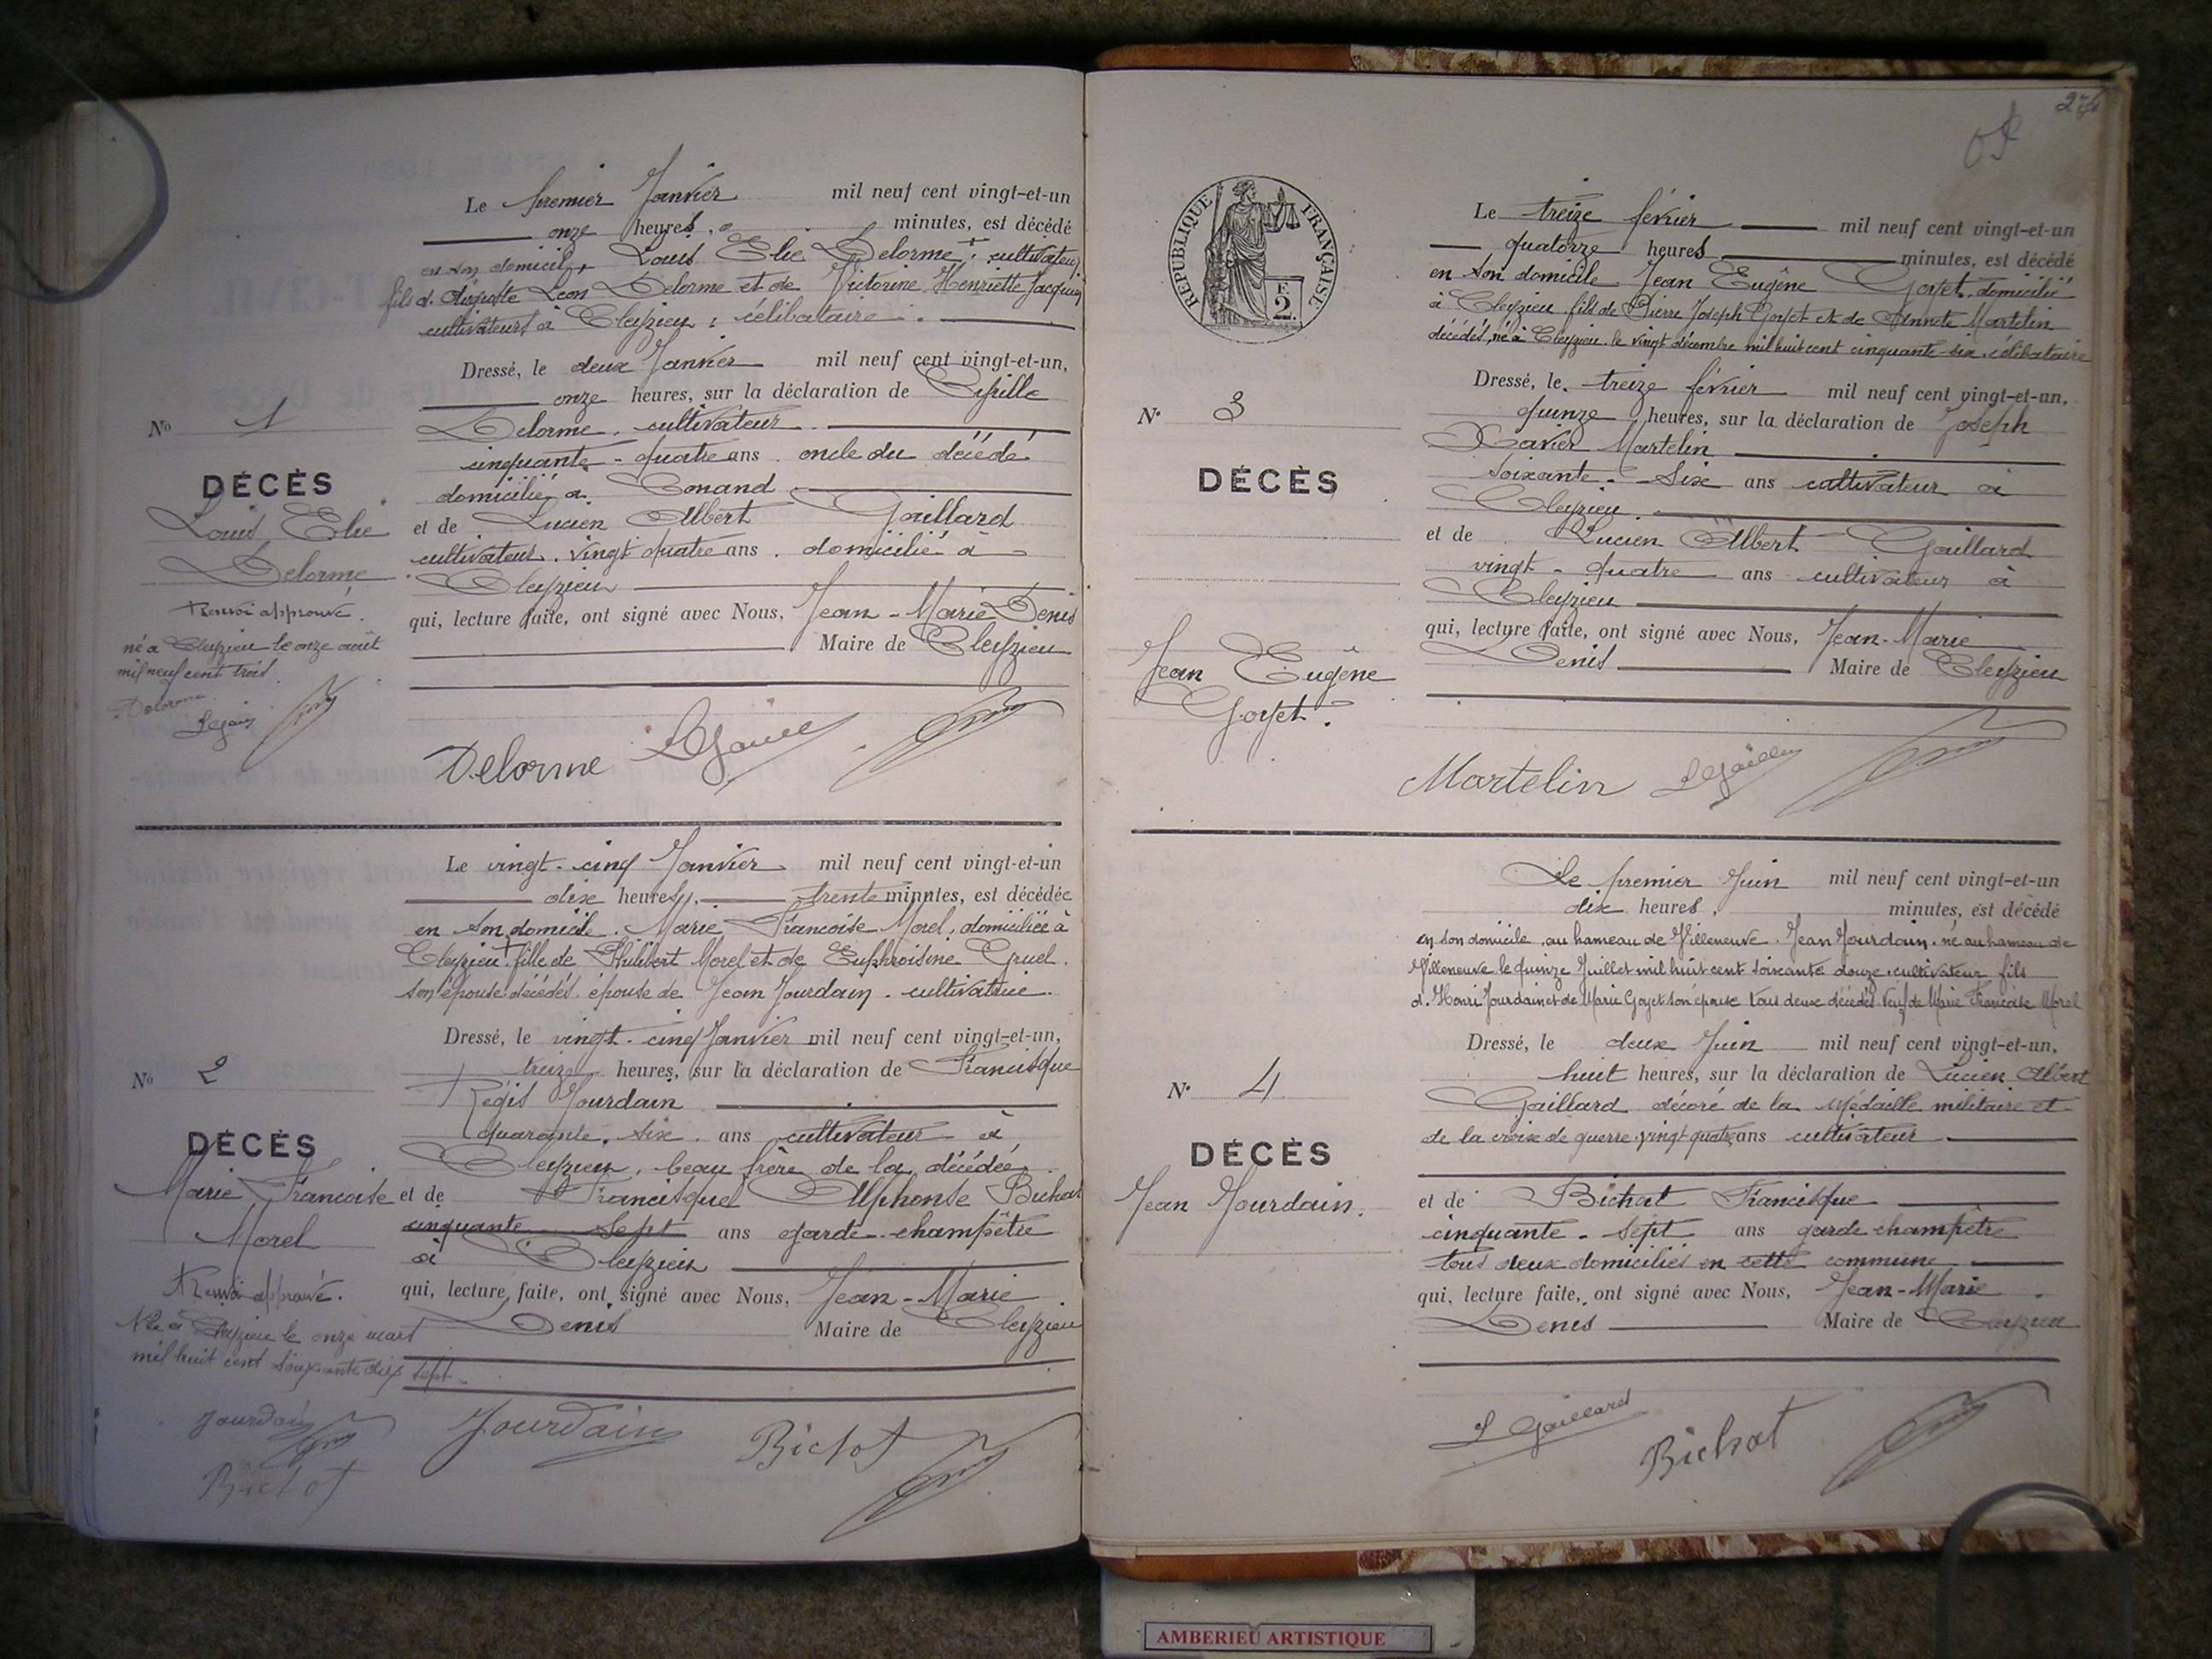 Le premier Janvier mil neuf cent vingt-et-un
onze heures, minutes, est décédé
en son domicile, Louis Elie Delorme + cultivateur
fils d'Auguste Léon Delorme et de Victorine Henriette Jacquin
cultivateurs à Cleyzieu ; célibataire.
Dressé, le deux Janvier mil neuf cent vingt-et-un,
onze heures, sur la déclaration de
Delorme, cultivateur
cinquante-quatre ans. oncle du décédé
domicilié à Conand
et de Lucien Albert Gaillard
cultivateur. vingt quatre ans. domicilié à
Cleyzieu
qui, lecture faite, ont signé avec Nous, Jean-Marie Denis
Maire de Cleyzieu
No 1
DÉCÈS
Louis Elie
Delorme
+ Renvoi approuvé.
né à Cleyzieu le onze août
mil neuf cent trois.
Delorme
Delorme
Le vingt-cinq Janvier mil neuf cent vingt-et-un
dix heures, trente minutes, est décédée
en son domicile. Marie Francoise Morel, domiciliée à
Cleyzieu + fille de Philibert Morel et de Euphroisine Gruel.
son épouse décédés. épouse de Jean Jourdain. cultivatrice.
Dressé, le vingt-cinq Janvier mil neuf cent vingt-et-un,
treize heures, sur la déclaration de Francisque
Régis Jourdain
quarante. six. ans cultivateur à
Cleyzieu, beau frère de la décédée
et de Francisque Alphonse Bichat
cinquante sept ans garde-champêtre
à Cleyzieu
qui, lecture faite, ont signé avec Nous, Jean-Marie
Denis Maire de Cleyzieu
No 2
DÉCÈS
Marie Francoise
Morel
+ Renvoi approuvé.
Née à Cleyzieu le onze mars
mil huit cent soixante dix sept.
Jourdain
Bichat
Jourdain Bichat
274
REPUBLIQUE FRANÇAISE
F.
2.
Le treize février mil neuf cent vingt-et-un
quatorze heures minutes, est décédé
en son domicile. Jean Eugène Goyet, domicilié
à Cleyzieu. fils de Pierre Joseph Goyet et de Annete Martelin
décédés, né à Cleyzieu. le vingt décembre mil huit cent cinquante-six. célibataire
Dressé, le treize février mil neuf cent vingt-et-un,
quinze heures, sur la déclaration de Joseph
Xavier Martelin
soixante-six ans cultivateur à
Cleyzieu.
et de Lucien Albert Gaillard
vingt-quatre ans cultivateur à
Cleyzieu
qui, lecture faite, ont signé avec Nous, Jean-Marie
Denis Maire de Cleyzieu
N° 3
DÉCÈS
Jean Eugène
Goyet.
Martelin
Le premier Juin mil neuf cent vingt-et-un
dix heures, minutes, est décédé
en son domicile, au hameau de Villeneuve. Jean Jourdain. né au hameau de
Villeneuve le quinze Juillet mil huit cent soixante douze, cultivateur fils
d. Henri Jourdain et de Marie Goyet son épouse tous deux décédés Veuf de Marie Francoise Morel
Dressé, le deux Juin mil neuf cent vingt-et-un,
huit heures, sur la déclaration de Lucien Albert
Gaillard décoré de la Médaille militaire et
de la croix de guerre. vingt quatre ans cultivateur
et de Bichat Francisque
cinquante-sept ans garde champêtre
tous deux domiciliés en cette commune
qui, lecture faite, ont signé avec Nous, Jean-Marie
Denis Maire de Cleyzieu
N° 4
DÉCÈS
Jean Jourdain.
L Gaillard
Bichat
AMBERIEU ARTISTIQUE